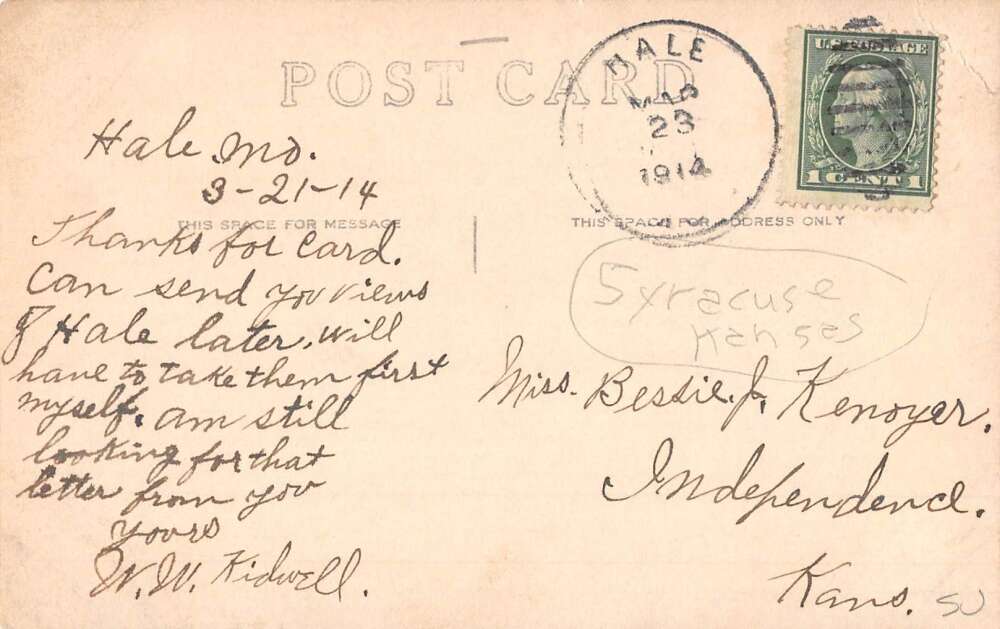 POST CARD
HALE
MAR
23
1914
U.S. POSTAGE
1 CENT 1
Hale Mo.
3-21-14
THIS SPACE FOR MESSAGE
THIS SPACE FOR ADDRESS ONLY
Thanks for card.
Can send you views
of Hale later. will
have to take them first
myself. am still
looking for that
letter from you
yours
W.W. Kidwell.
Syracuse
Kansas
Miss. Bessie. J. Kenoyer.
Independence.
Kans.
SU